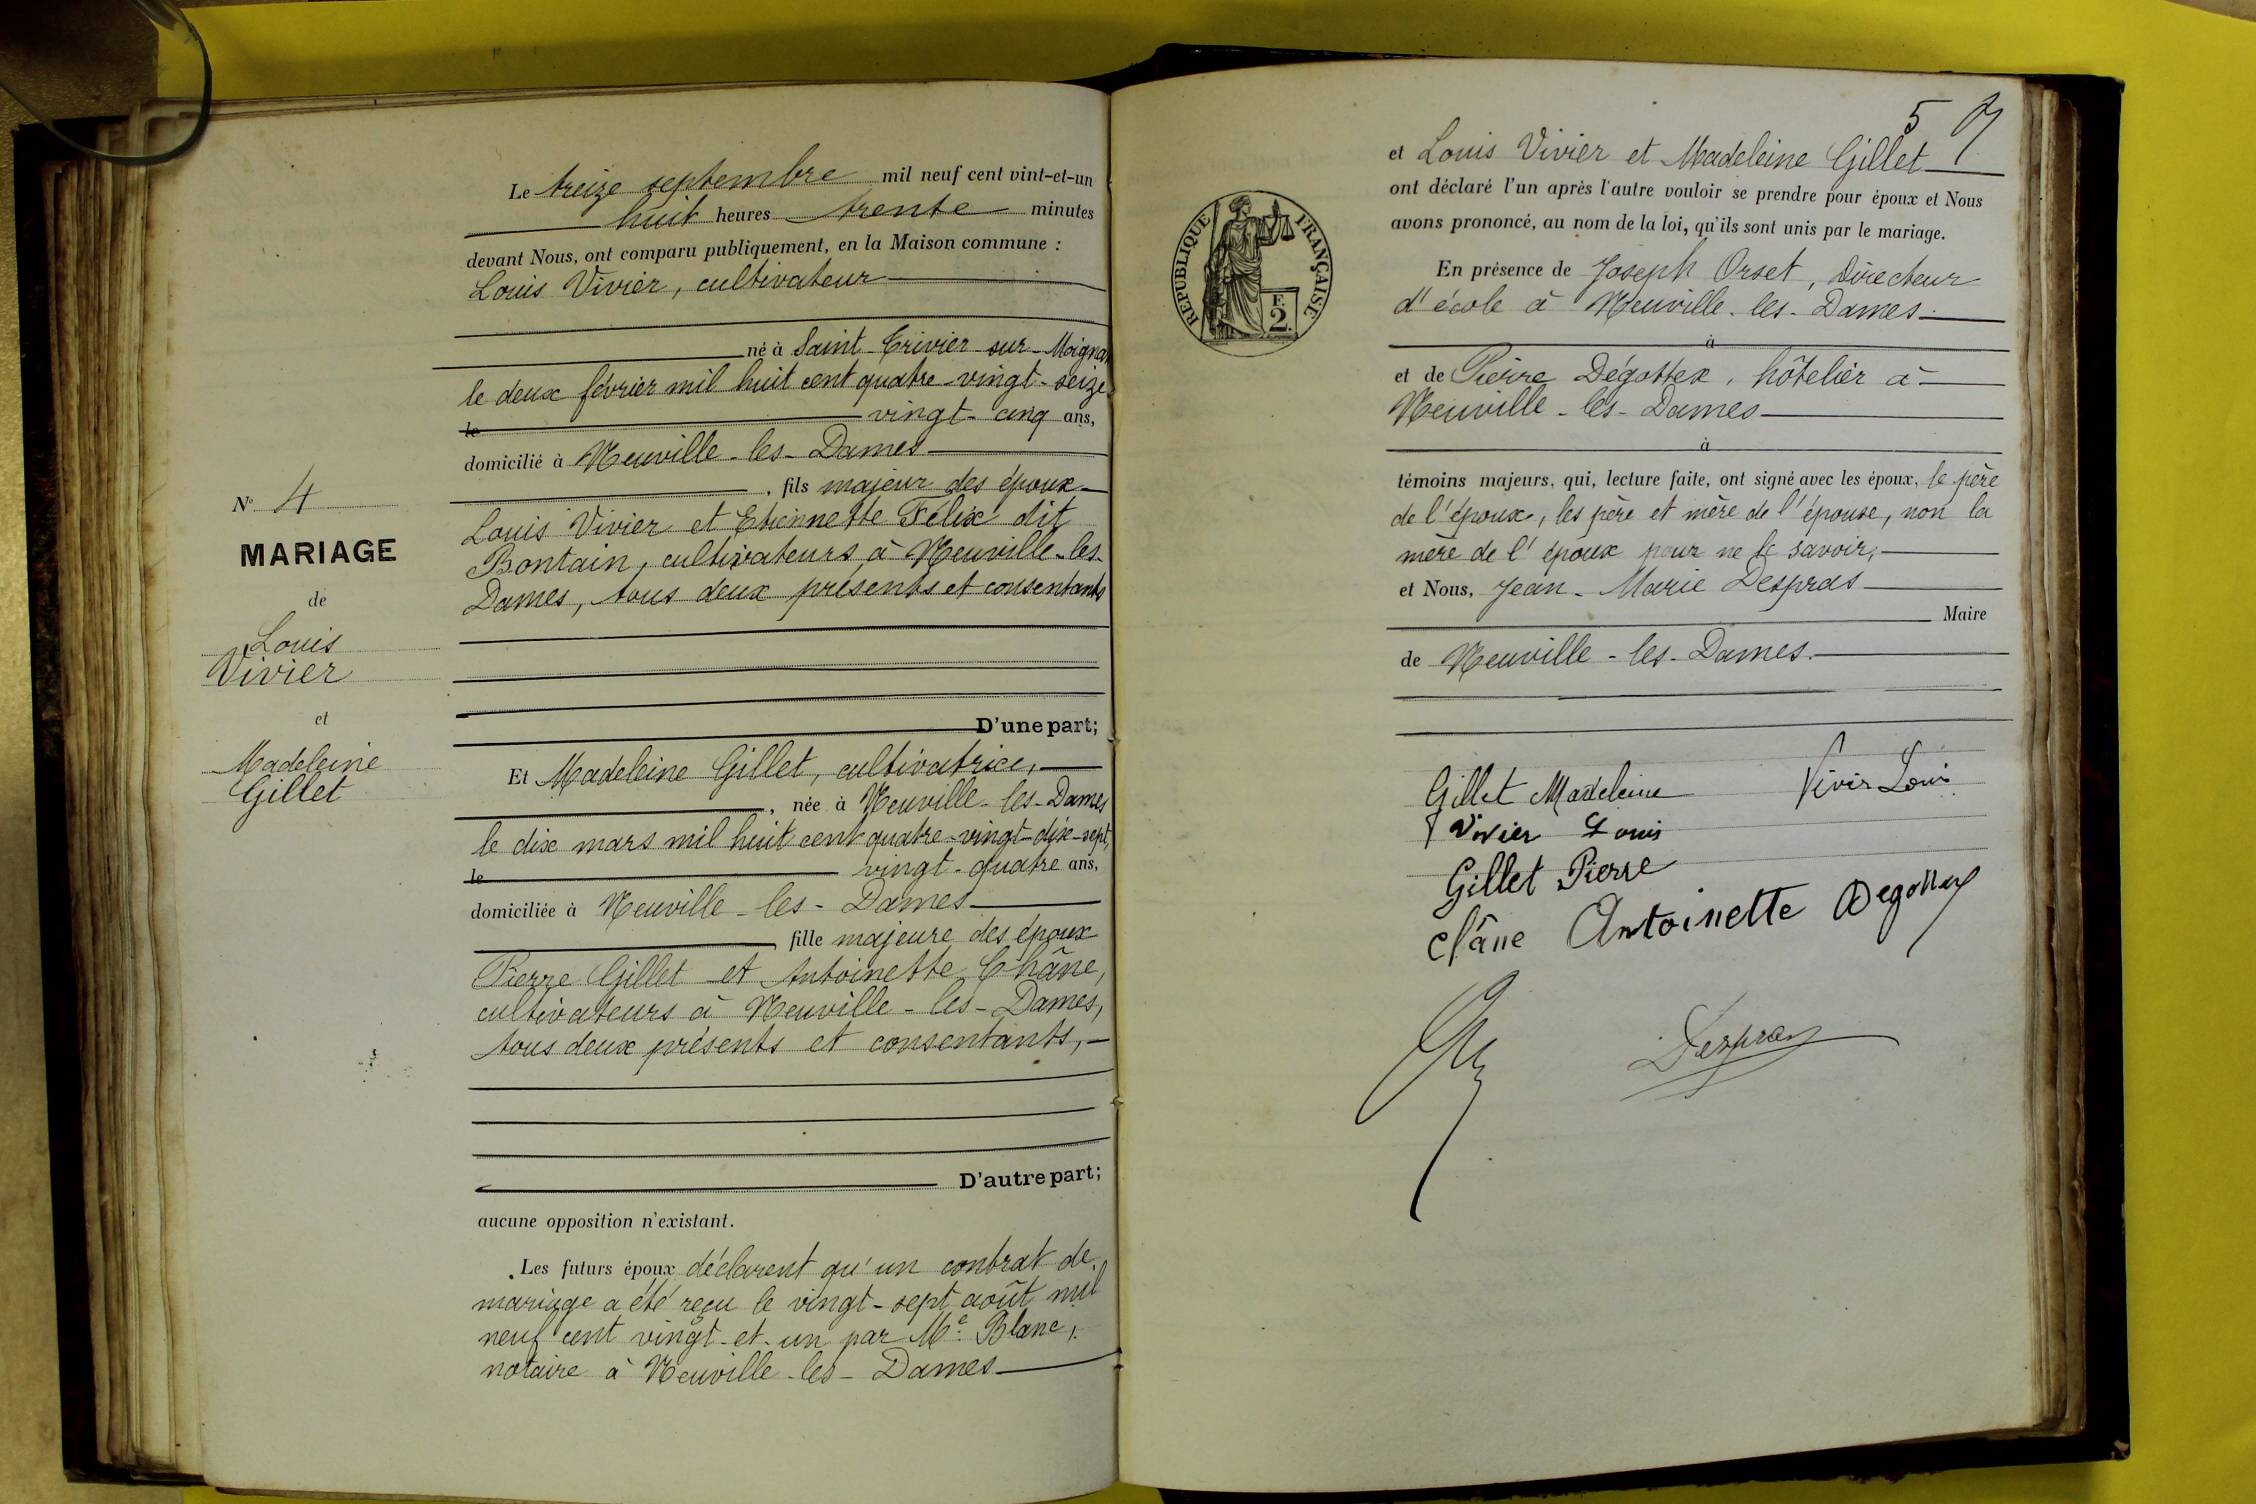 N° 4
MARIAGE
de
Louis
Vivier
et
Madeleine
Gillet
Le treize septembre mil neuf cent vint-et-un
huit heures trente minutes
devant Nous, ont comparu publiquement, en la Maison commune :
Louis Vivier, cultivateur
né à Saint-Trivier-sur-Moignans
le deux février mil huit cent quatre-vingt-seize
le vingt-cinq ans,
domicilié à Neuville-les-Dames
, fils majeur des époux
Louis Vivier et Etiennette Félix dit
Bontain, cultivateurs à Neuville-les-
Dames, tous deux présents et consentants
D'une part;
Et Madeleine Gillet, cultivatrice,
, née à Neuville-les-Dames
le dix mars mil huit cent quatre-vingt-dix-sept,
le vingt-quatre ans,
domiciliée à Neuville-les-Dames
, fille majeure des époux
Pierre Gillet et Antoinette Châne,
cultivateurs à Neuville-les-Dames,
tous deux présents et consentants,
D'autre part;
aucune opposition n'existant.
Les futurs époux déclarent qu'un contrat de
mariage a été reçu le vingt-sept août mil
neuf cent vingt-et-un par Me Blanc,
notaire à Neuville-les-Dames
5
REPUBLIQUE FRANÇAISE
F.
2
et Louis Vivier et Madeleine Gillet
ont déclaré l'un après l'autre vouloir se prendre pour époux et Nous
avons prononcé, au nom de la loi, qu'ils sont unis par le mariage.
En présence de Joseph Orset, Directeur
d'école à Neuville-les-Dames
à
et de Pierre Dégottex, hôtelier à
Neuville-les-Dames
à
témoins majeurs, qui, lecture faite, ont signé avec les époux, le père
de l'époux, les père et mère de l'épouse, non la
mère de l'époux pour ne le savoir,
et Nous, Jean-Marie Despras
Maire
de Neuville-les-Dames.
Gillet Madeleine Vivier Louis
Vivier Louis
Gillet Pierre
Châne Antoinette Degottex
Despras